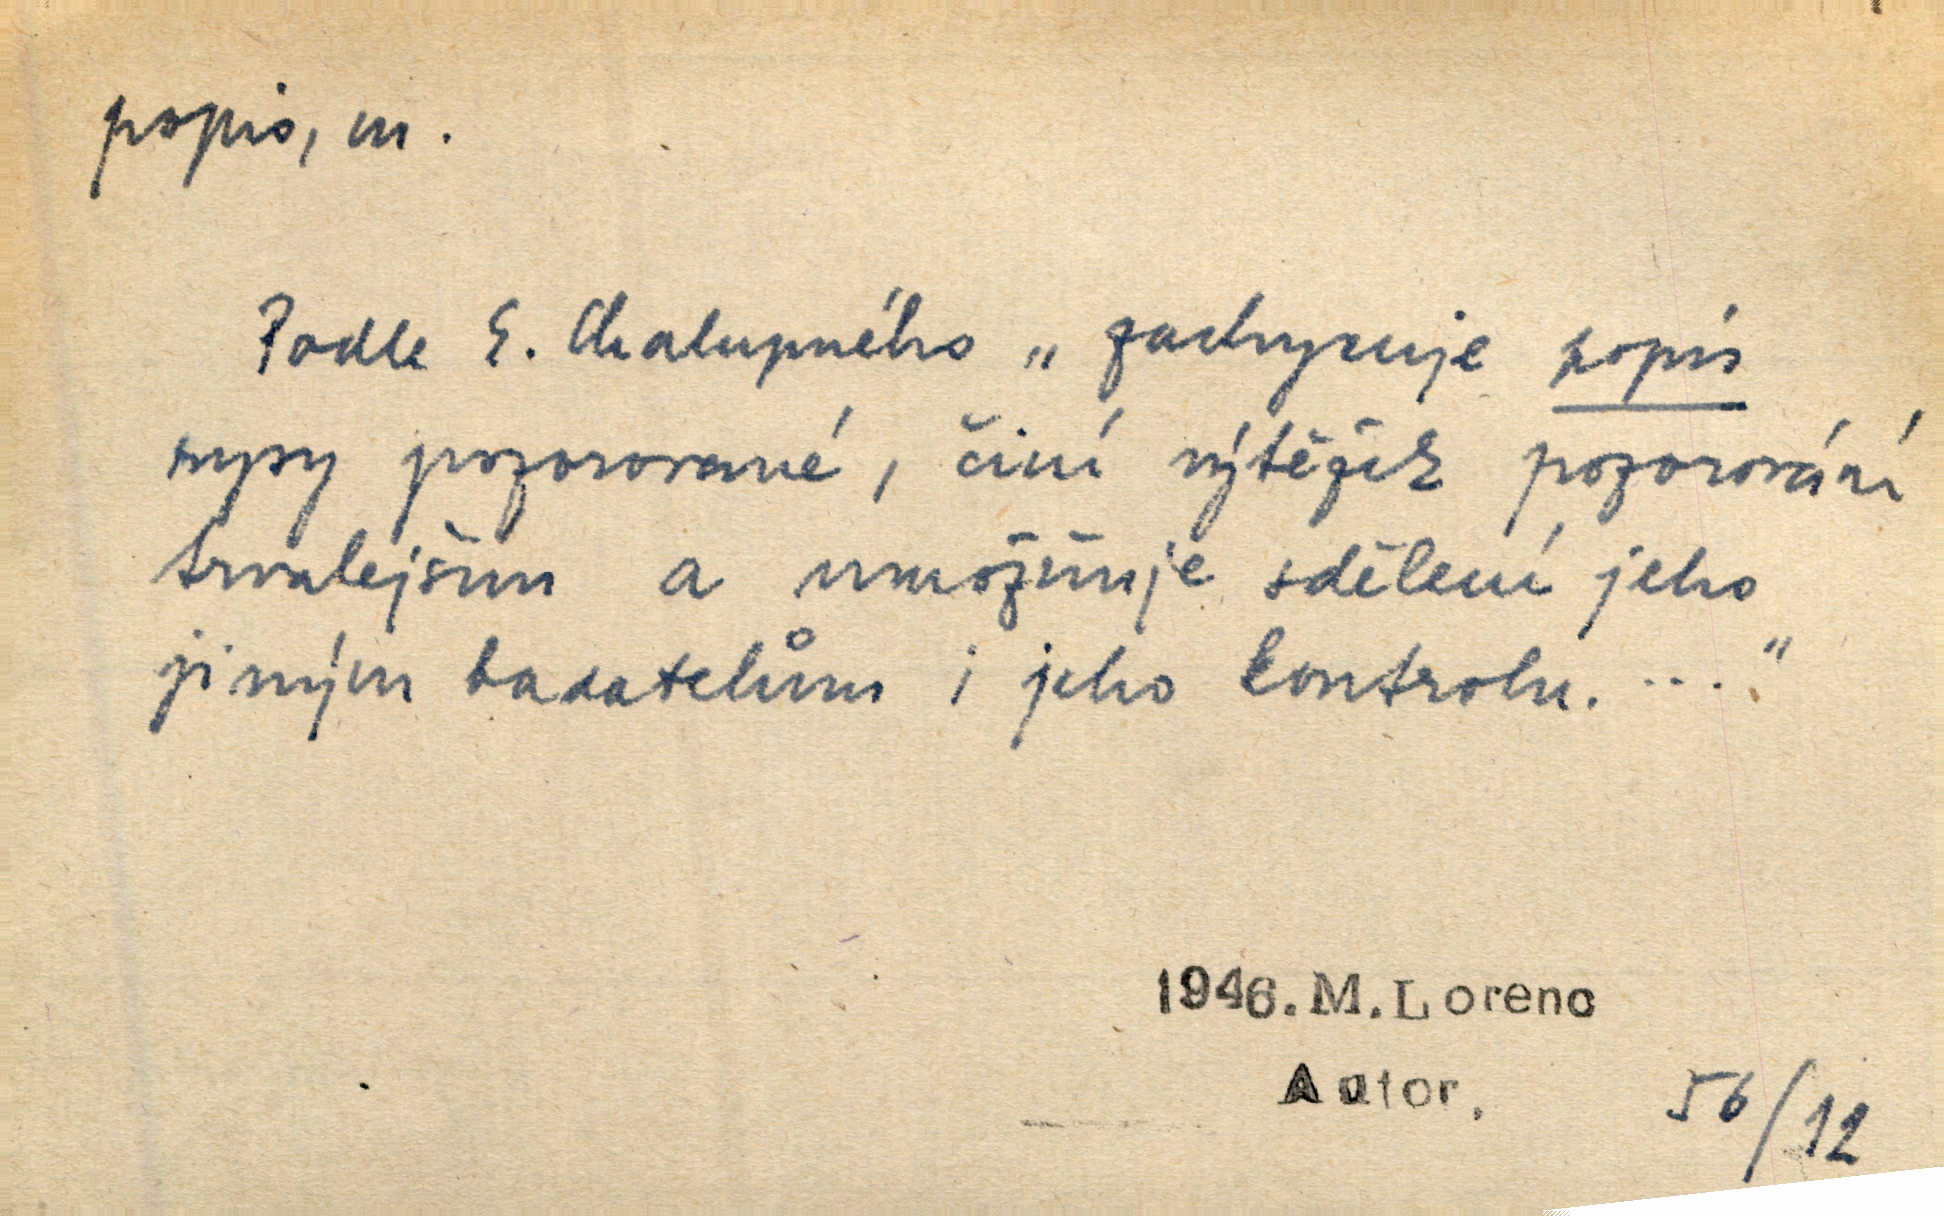 popis, m.
Podle E. Chalupného „zachycuje popis
rysy pozorované, činí výtěžek pozorování
trvalejším a umožňuje sdělení jeho
jiným badatelům i jeho kontrolu. ..."
1946. M. Lorenc
Autor.
56/12